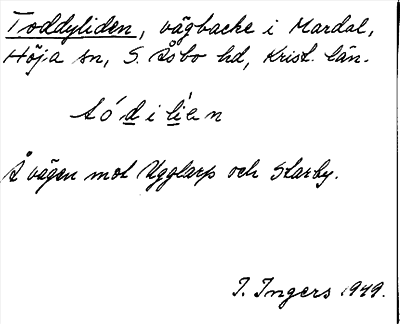 Toddyliden, vägbacke i Mardal,
Höja sn, S. Åsbo hd, Krist. län.
tódilíen
Å vägen mot Ugglarp och Starby.
I. Ingers 1949.